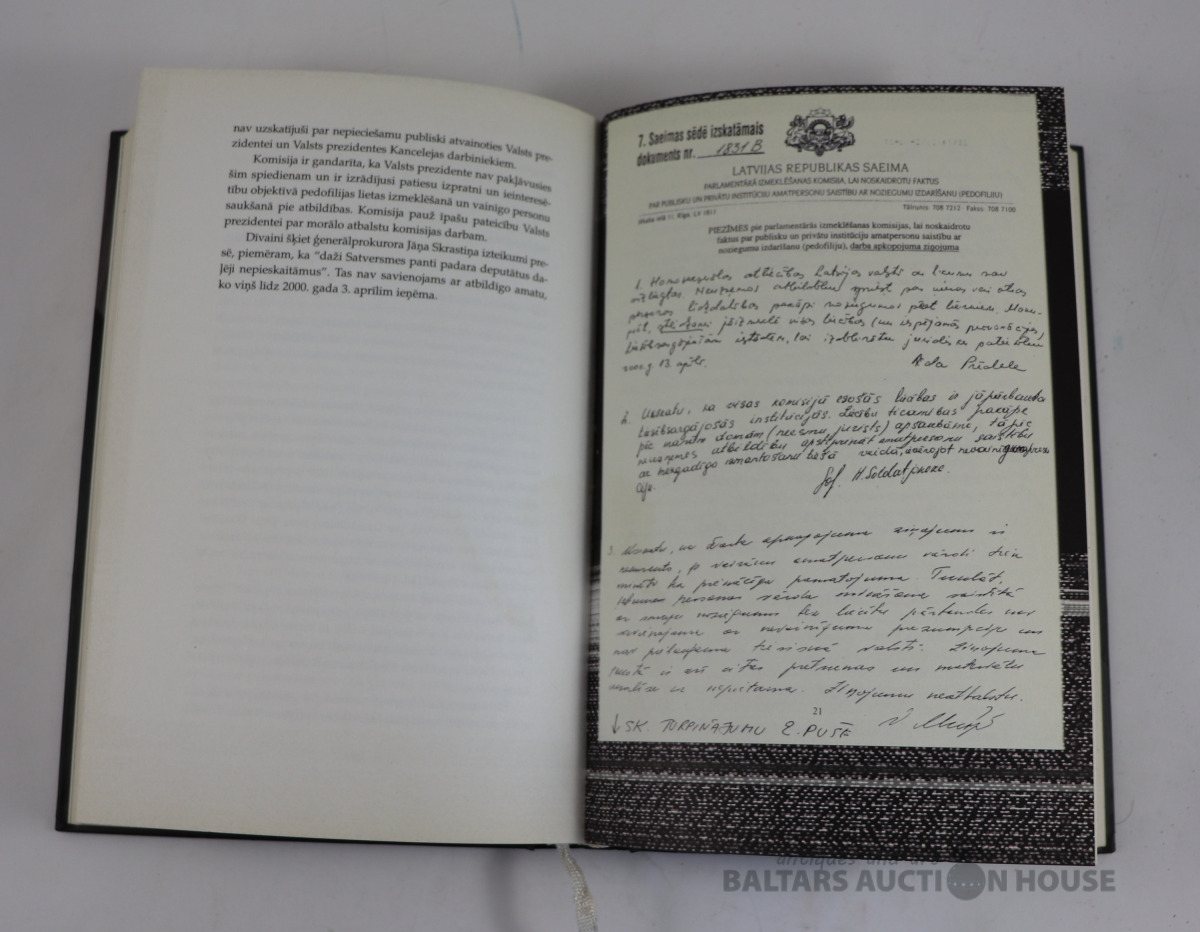 nav uzskatījuši par nepieciešamu publiski atvainoties Valsts pre-
zidentei un Valsts prezidentes Kancelejas darbiniekiem.
Komisija ir gandarīta, ka Valsts prezidente nav pakļāvusies
šim spiedienam un ir izrādījusi patiesu izpratni un ieinteresē-
tību objektīvā pedofilijas lietas izmeklēšanā un vainīgo personu
saukšanā pie atbildības. Komisija pauž īpašu pateicību Valsts
prezidentei par morālo atbalstu komisijas darbam.
Dīvaini šķiet ģenerālprokurora Jāņa Skrastiņa izteikumi pre-
sē, piemēram, ka “daži Satversmes panti padara deputātus da-
ļēji nepieskaitāmus”. Tas nav savienojams ar atbildīgo amatu,
ko viņš līdz 2000. gada 3. aprīlim ieņēma.
7. Saeimas sēdē izskatāmais
dokuments nr. 1831 B
LATVIJAS REPUBLIKAS SAEIMA
PARLAMENTĀRĀ IZMEKLĒŠANAS KOMISIJA, LAI NOSKAIDROTU FAKTUS
PAR PUBLISKU UN PRIVĀTU INSTITŪCIJU AMATPERSONU SAISTĪBU AR NOZIEGUMU IZDARĪŠANU (PEDOFILIJU)
Jēkaba ielā 11, Rīga, LV 1811 Tālrunis: 708 7212 Fakss: 708 7100
PIEZĪMES pie parlamentārās izmeklēšanas komisijas, lai noskaidrotu
faktus par publisku un privātu institūciju amatpersonu saistību ar
noziegumu izdarīšanu (pedofiliju), darba apkopojuma ziņojuma
1. Homoseksuālas attiecības Latvijas valstī ar likumu nav
aizliegtas. Neuzņemos atbildību spriest par vienas vai otras
personas līdzdalības pakāpi noziegumos pret bērniem.
jāizmeklē visas liecības (un iespējamās provokācijas)
tiesībsargājošām iestādēm, lai izdibinātu juridisko patiesību
2000.g. 13. apr.
2. Uzskatu, ka visas komisijā esošās liecības ir jāpārbauda
tiesībsargājošās institūcijās. Liecību ticamības pakāpe
pēc manām domām (neesmu jurists) apšaubāma, tāpēc
neuzņemos atbildību apstiprināt amatpersonu saistību
ar mazgadīgo izmantošanu
H. Soldatjonoka.
3. Uzskatu, ka Darba apkopojuma ziņojums ir
vairāku amatpersonu vārdi tiek
minēti bez pienācīga pamatojuma. Turklāt,
personas vārda minēšana saistībā
ar smagu noziegumu bez liecību pārbaudes nav
savienojama ar nevainīguma prezumpciju un
nav pieļaujama tiesiskā valstī. Ziņojuma
tekstā ir arī citas pretrunas un materiālu
analīze ir nepietiekama. Ziņojumu neatbalstu.
21
↓ SK. TURPINĀJUMU 2. PUSĒ
antiques and art
BALTARS AUCTION HOUSE